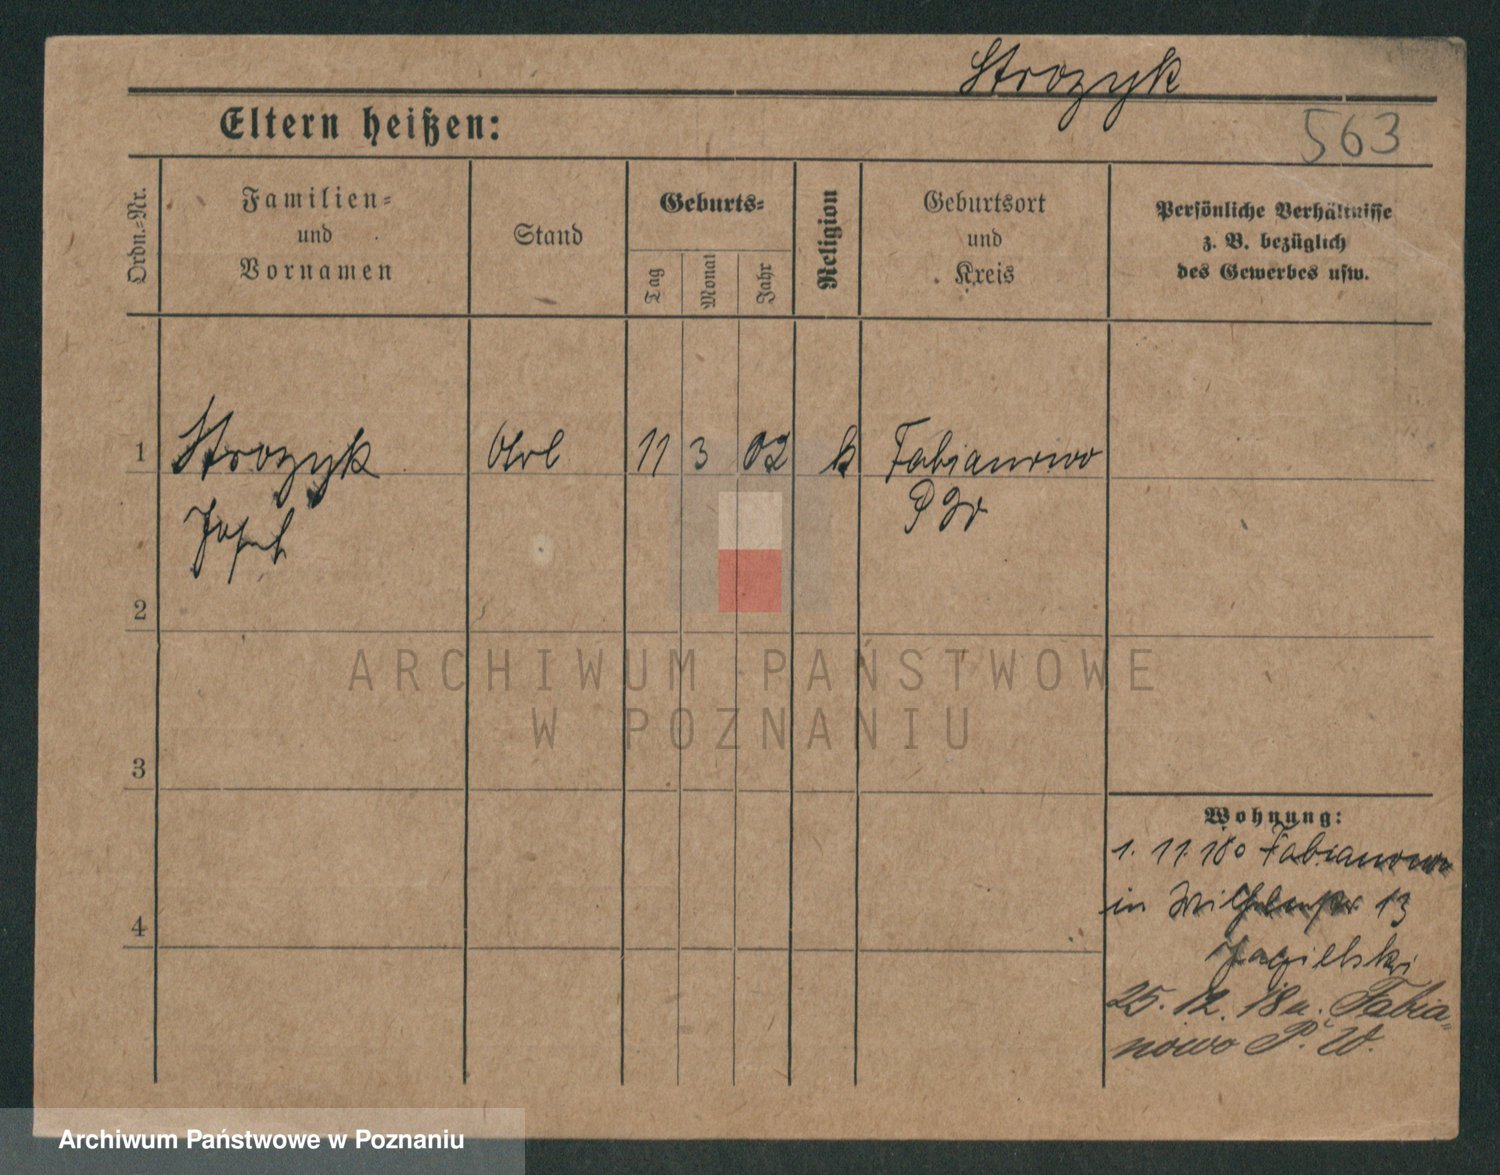 Strozyk
Eltern heißen:
563
Ordn.-Nr.
Familien-
und
Vornamen
Stand
Geburts-
Tag
Monat
Jahr
Religion
Geburtsort
und
Kreis
Persönliche Verhältnisse
z. B. bezüglich
des Gewerbes usw.
1 Strozyk 11 3 02 k Fabianowo
Josef
2
3
4
Wohnung:
1. 11. 18 Fabianowo
in 13
Jagielski
25. 12. 18 n. Fabia-
nowo P. W.
ARCHIWUM PAŃSTWOWE
W POZNANIU
Archiwum Państwowe w Poznaniu